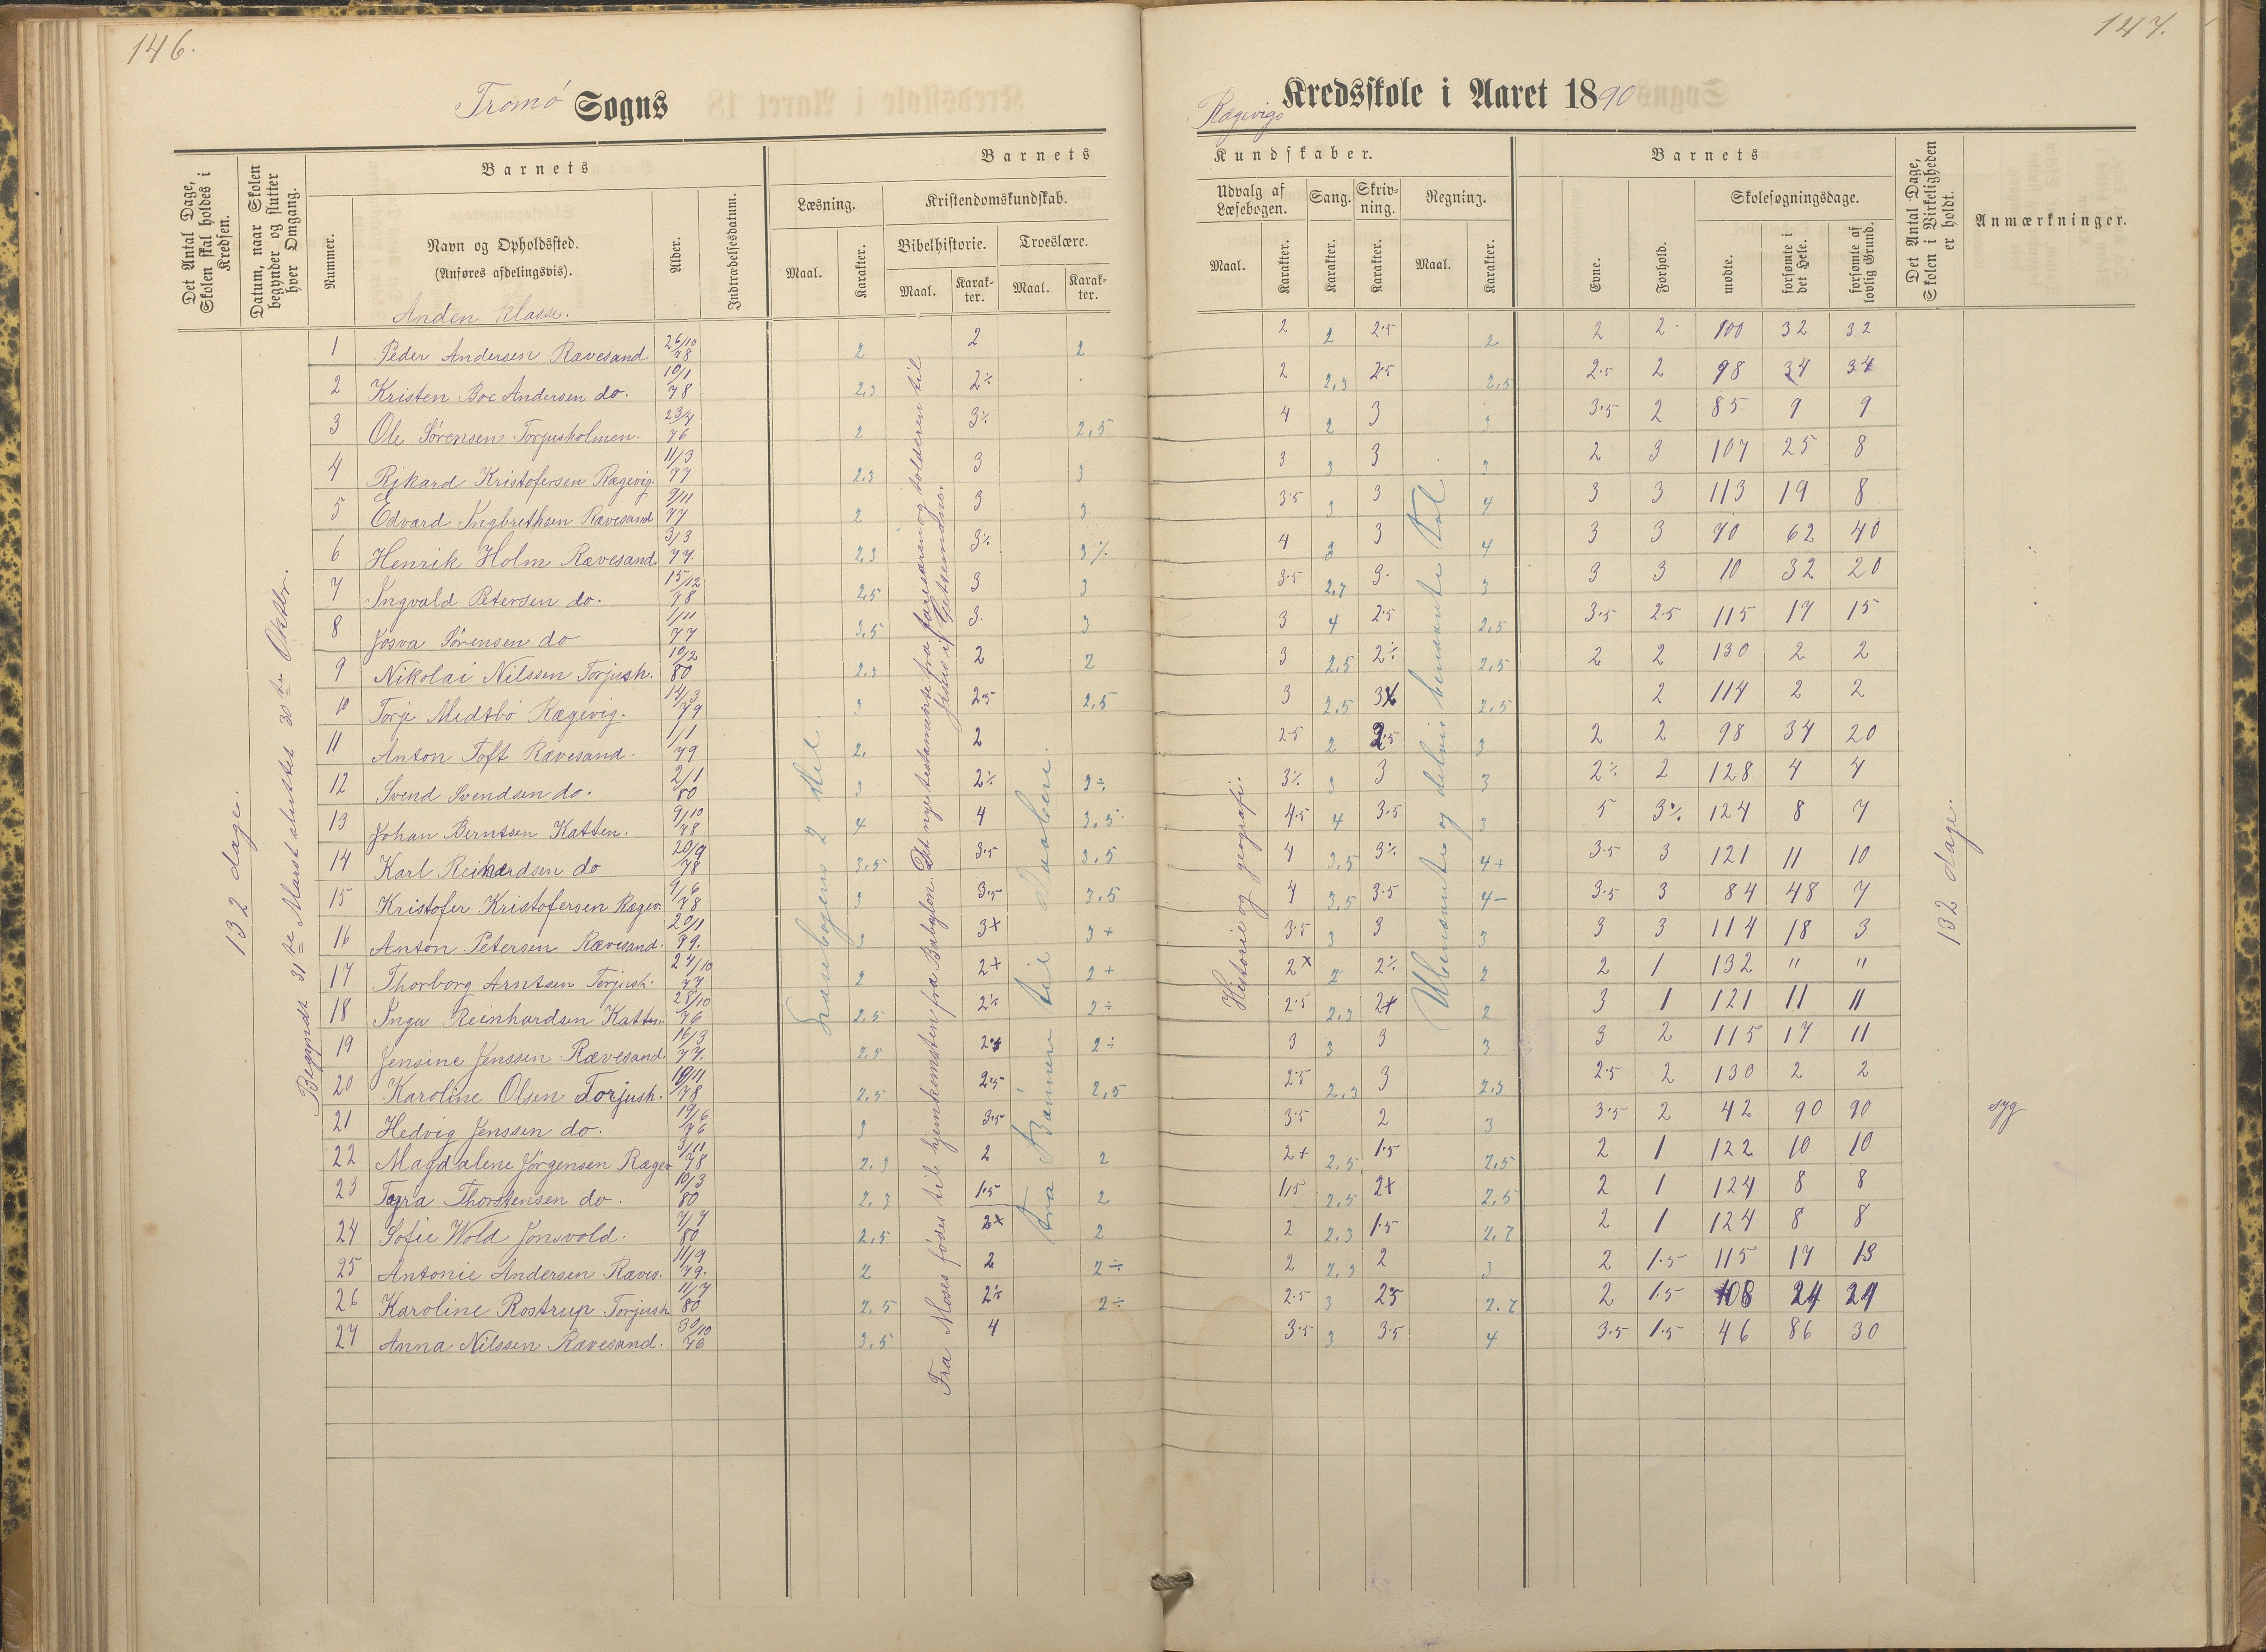 146.
Tromø Sogns
Det Antal Dage, Skolen skal holdes i Kredsen.
Datum, naar Skolen begynder og slutter hver Omgang.
Barnets
Nummer.
Navn og Opholdssted.
(Anføres afdelingsvis).
Alder.
Indtrædelsesdatum.
Barnets
Læsning.
Maal.
Karakter.
Kristendomskundskab.
Bibelhistorie.
Maal.
Karakter.
Troeslære.
Maal.
Karakter.
Anden klasse.
132 dage.
Læsebogens 2 del
1 Peder Andersen Rævesand 26/10 78 2 2 2
2 Kristen Boe Andersen do. 10/1 78 2,3 2÷
3 Ole Sørensen Torjusholmen. 23/7 76 2 3÷ 2,5
4 Rikard Kristofersen Rægevig. 11/3 77 2,3 3 3
5 Edvard Ingbrethsen Rævesand 9/11 77 2 3 3
6 Henrik Holm Rævesand 3/3 77. 2,3 3÷ 3÷
7 Ingvald Petersen do. 15/12 78 2,5 3 3
8 Josva Sørensen do 1/11 77 3,5 3. 3
9 Nikolai Nilssen Torjush. 10/2 80 2,3 2 2
10 Torje Midtbø Rægevig. 14/3 79 3 2.5 2,5
11 Anton Toft Rævesand. 1/1 79 2. 2
12 Svend Svendsen do. 2/1 80 3 2÷ 2÷
13 Johan Berntsen Katten. 9/10 78 4 4 3,5
14 Karl Reinhardsen do 20/9 78 3,5 3.5 3,5
15 Kristofer Kristofersen Rægev. 9/6 78 3 3.5 3,5
16 Anton Petersen Rævesand. 20/1 79. 3 3+ 3+
17 Thorborg Arntsen Torjush. 24/10 77 2 2+ 2+
18 Inga Reinhardsen Katten. 28/10 76 2,5 2÷ 2÷
19 Jensine Jenssen Rævesand. 16/3 77. 2,5 2+ 2÷
20 Karoline Olsen Torjush. 10/11 78 2,5 2.5 2,5
21 Hedvig Jenssen do. 19/6 76 3 3.5
22 Magdalene Jørgensen Rægev 3/11 78 2,3 2 2
23 Tora Thorstensen do. 10/3 80 2,3 1.5 2
24 Sofie Wold Jonsvold. 7/7 80 2,5 2+ 2
25 Antonie Andersen Ræves. 11/9 79. 2 2 2÷
26 Karoline Rostrup Torjush 11/7 80 2,5 2÷ 2÷
27 Anna Nilssen Rævesand. 30/10 76 3,5 4
147.
Rægevigs Kredsskole i Aaret 1890
Kundskaber.
Udvalg af Læsebogen.
Maal.
Karakter.
Sang.
Karakter.
Skrivning.
Karakter.
Regning.
Maal.
Karakter.
Barnets
Evne.
Forhold.
Skolesøgningsdage.
mødte.
forsømte i det Hele.
forsømte af lovlig Grund.
Det Antal Dage, Skolen i Virkeligheden er holdt.
Anmærkninger.
Historie og geografi.
Ubenævnte og delvis benævnte Tal
132 dage.
2 2 2.5 2 2 2 100 32 32
2 2,3 2.5 2,5 2.5 2 98 34 34
4 2 3 3 3.5 2 85 9 9
3 3 3 3 2 3 107 25 8
3.5 3 3 4 3 3 113 19 8
4 3 3 4 3 3 70 62 40
3.5 2,7 3. 3 3 3 10 32 20
3 4 2.5 2,5 3.5 2.5 115 17 15
3 2,5 2÷ 2,5 2 2 130 2 2
3 2,5 3 2,5 2 114 2 2
2.5 2 2.5 3 2 2 98 34 20
3÷ 3 3 3 2÷ 2 128 4 4
4.5 4 3.5 3 5 3÷ 124 8 7
4 3,5 3÷ 4+ 3.5 3 121 11 10
4 3,5 3.5 4- 3.5 3 84 48 7
3.5 3 3 3 3 3 114 18 3
2+ 2 2÷ 2 2 1 132 " "
2.5 2,3 2+ 2 3 1 121 11 11
3 3 3 3 3 2 115 17 11
2.5 2,3 3 2,3 2.5 2 130 2 2
3.5 2 3 3.5 2 42 90 90 syg
2+ 2,5 1.5 2,5 2 1 122 10 10
1,5 2,5 2+ 2,5 2 1 124 8 8
2 2,3 1.5 2,7 2 1 124 8 8
2 2,3 2 3 2 1.5 115 17 13
2.5 3 2.5 2.7 2 1.5 108 24 24
3.5 3 3.5 4 3.5 1.5 46 86 30